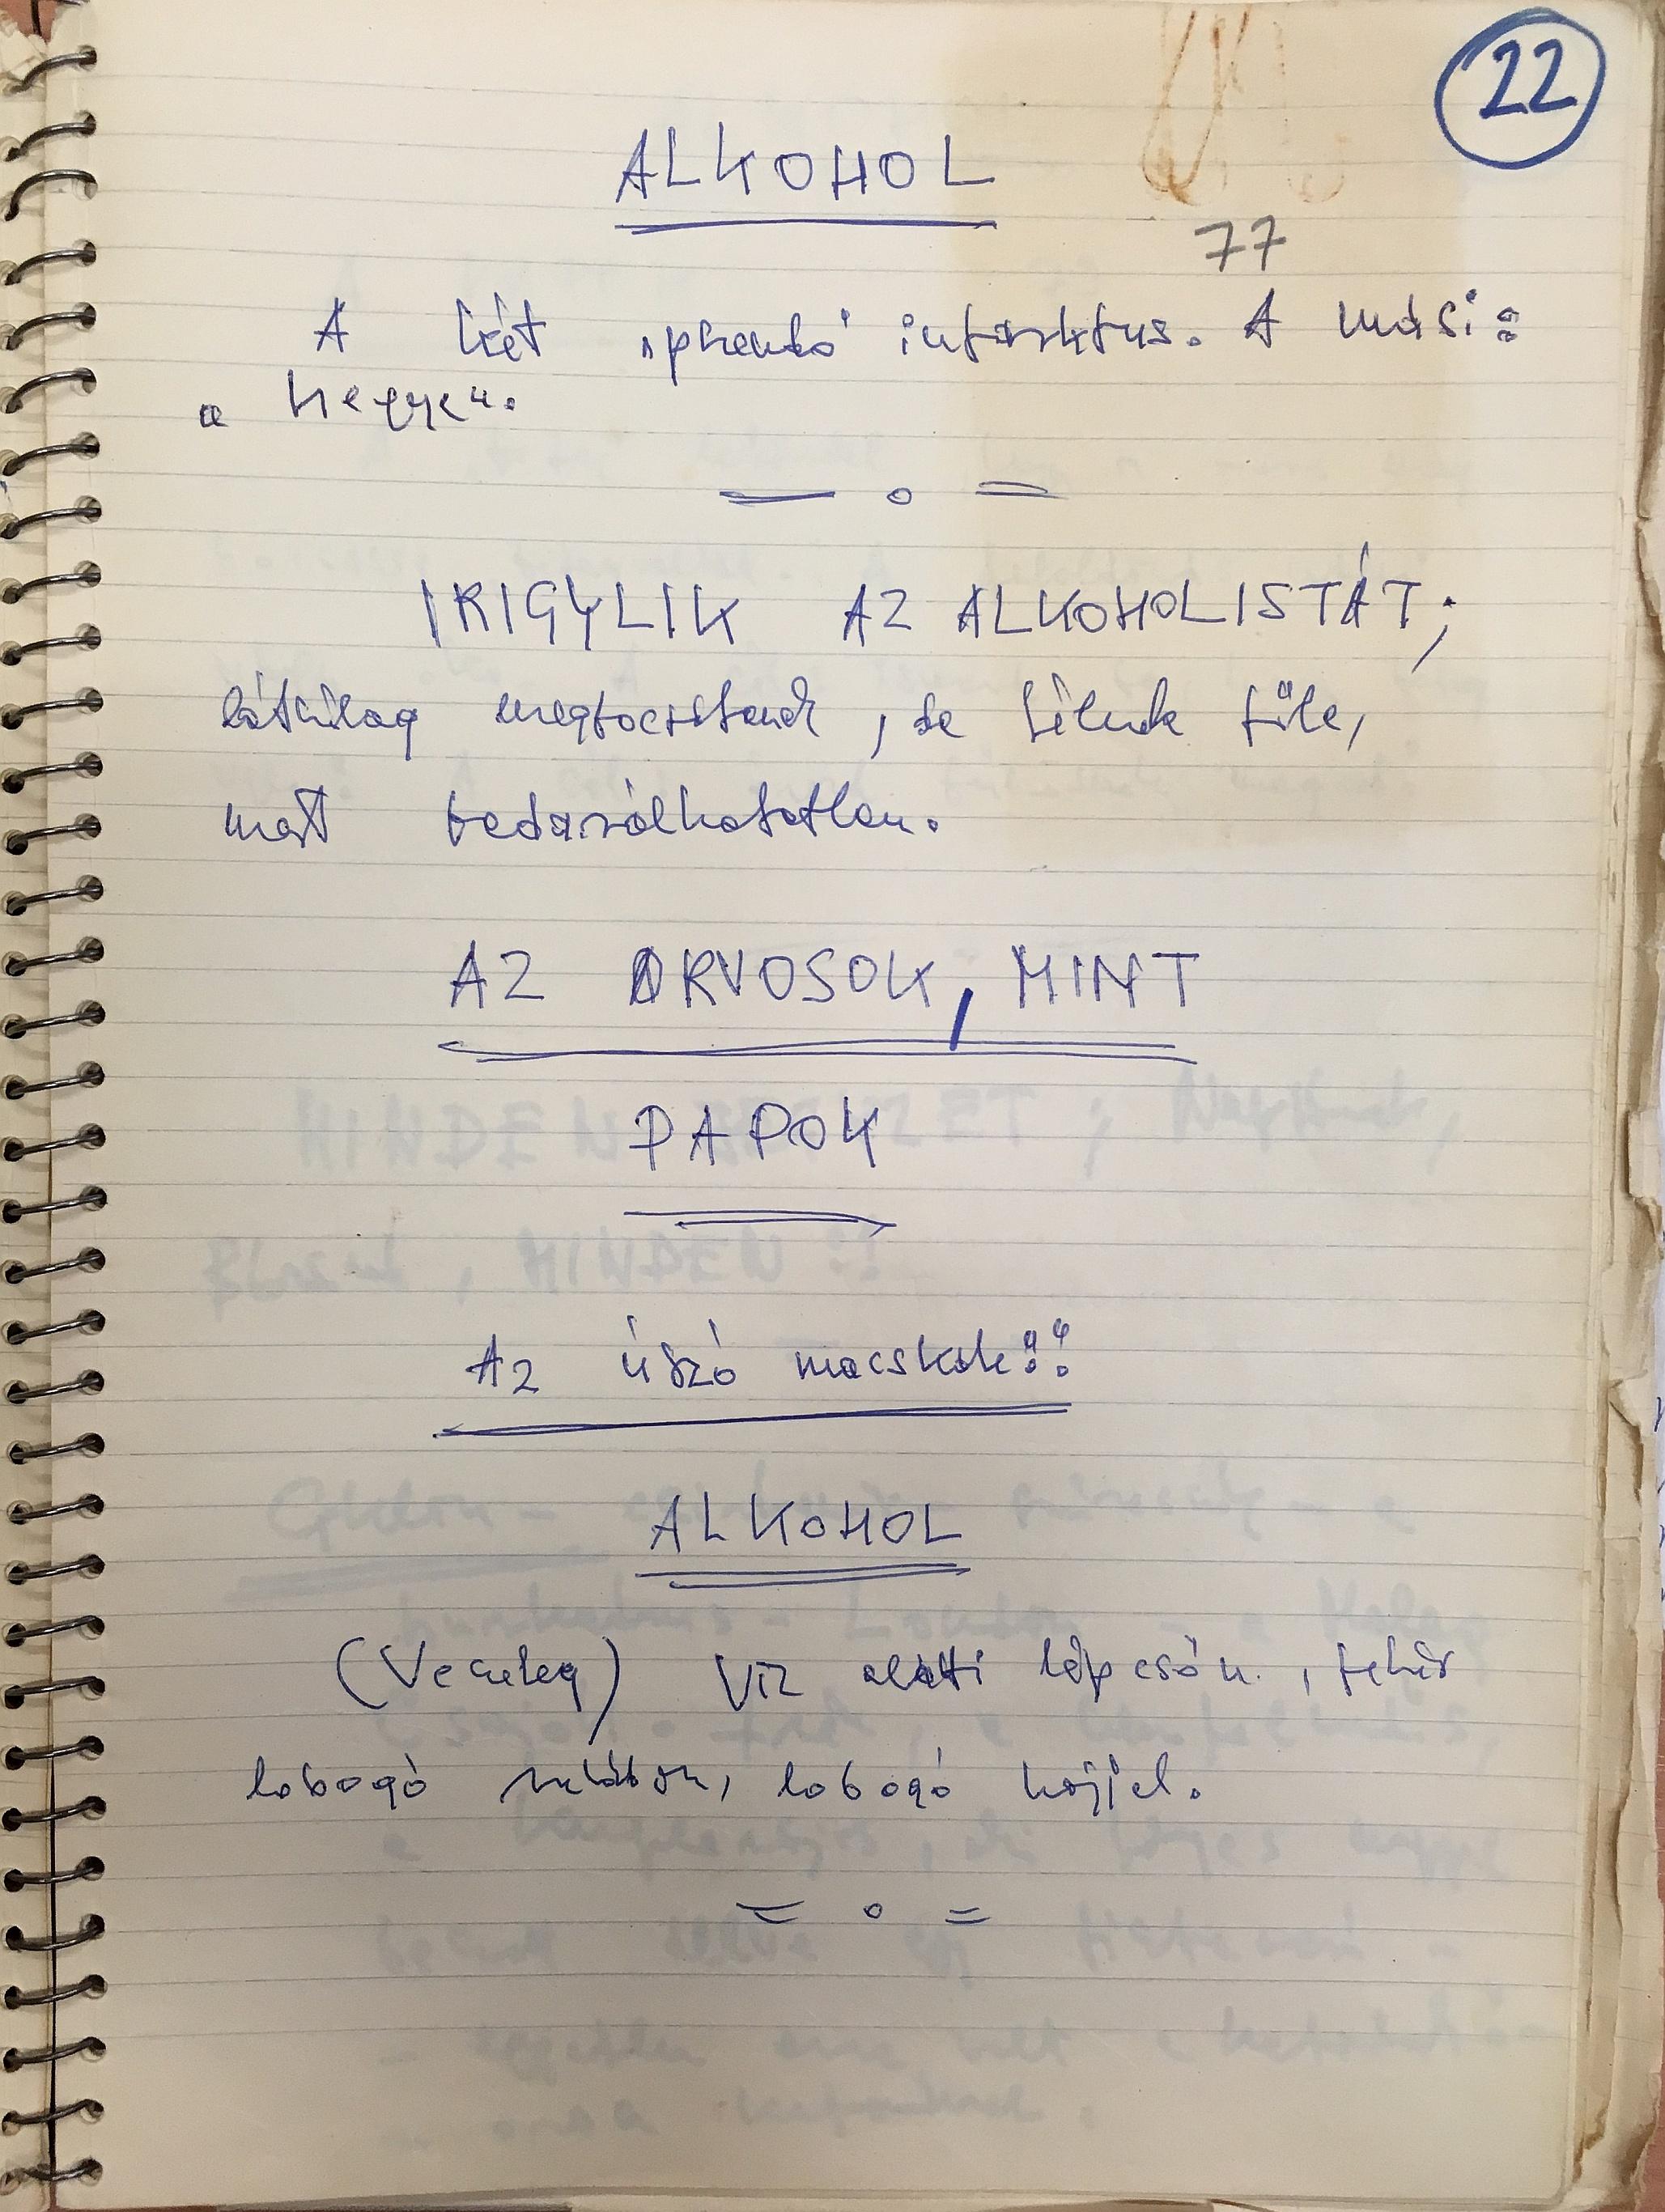 22
ALKOHOL
77
A két „pszeudo" infarktus. A Mási:
a hegyen.
— o =
IRIGYLIK AZ ALKOHOLISTÁT;
látszólag megbocsátanak, de félnek tőle,
mert bedarálhatatlan.
AZ ORVOSOK, MINT
PAPOK
Az úszó macskák!!
ALKOHOL
(Vecseleg) Víz alatti lépcsőn, fehér
lobogó ruhában, lobogó hajjal.
= o =